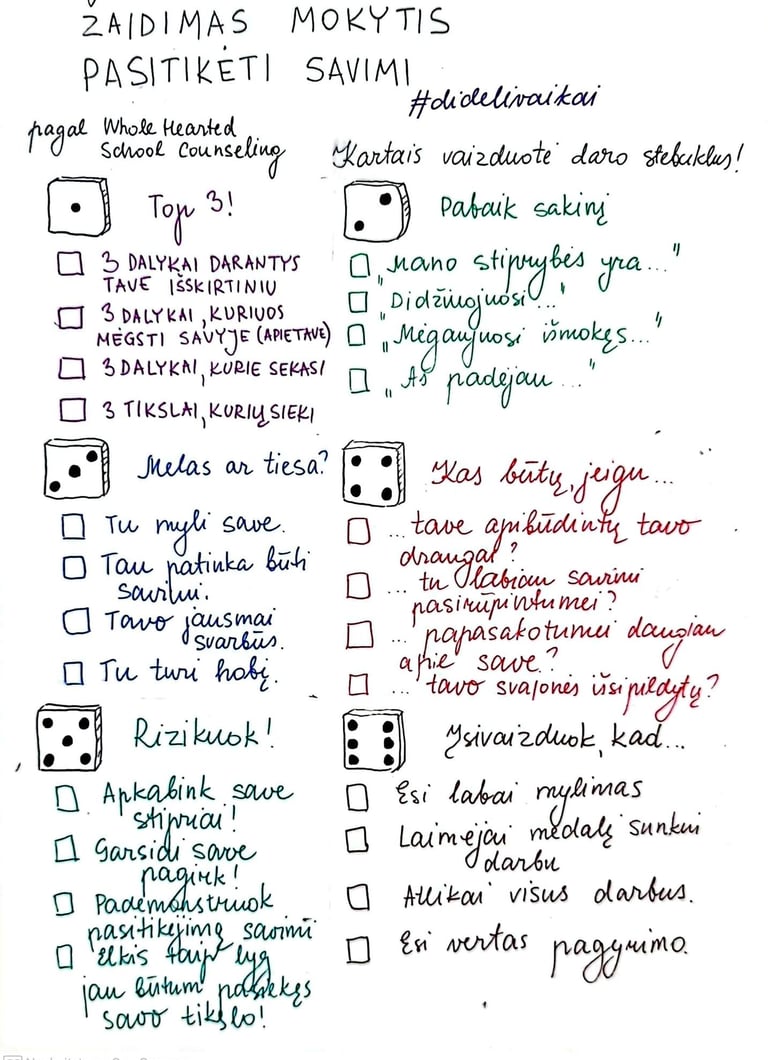 ŽAIDIMAS MOKYTIS
PASITIKĖTI SAVIMI
#didelivaikai
pagal Whole Hearted
School Counseling
Kartais vaizduotė daro stebuklus!
Top 3!
3 DALYKAI DARANTYS
TAVE IŠSKIRTINIU
3 DALYKAI, KURIUOS
MĖGSTI SAVYJE (APIE TAVE)
3 DALYKAI, KURIE SEKASI
3 TIKSLAI, KURIŲ SIEKI
Pabaik sakinį
„Mano stiprybės yra..."
„Didžiuojuosi..."
„Mėgaujuosi išmokęs..."
„Aš padėjau..."
Melas ar tiesa?
Tu myli save.
Tau patinka būti
savimi.
Tavo jausmai
svarbūs.
Tu turi hobį.
Kas būtų, jeigu...
... tave apibūdintų tavo
draugai?
... tu labiau savimi
pasirūpintumei?
... papasakotumei daugiau
apie save?
... tavo svajonės išsipildytų?
Rizikuok!
Apkabink save
stipriai!
Garsiai save
pagirk!
Pademonstruok
pasitikėjimą savimi
Elkis taip lyg
jau būtum pasiekęs
savo tikslo!
Įsivaizduok, kad...
Esi labai mylimas
Laimėjai medalį sunkiu
darbu
Atlikai visus darbus.
Esi vertas pagyrimo.